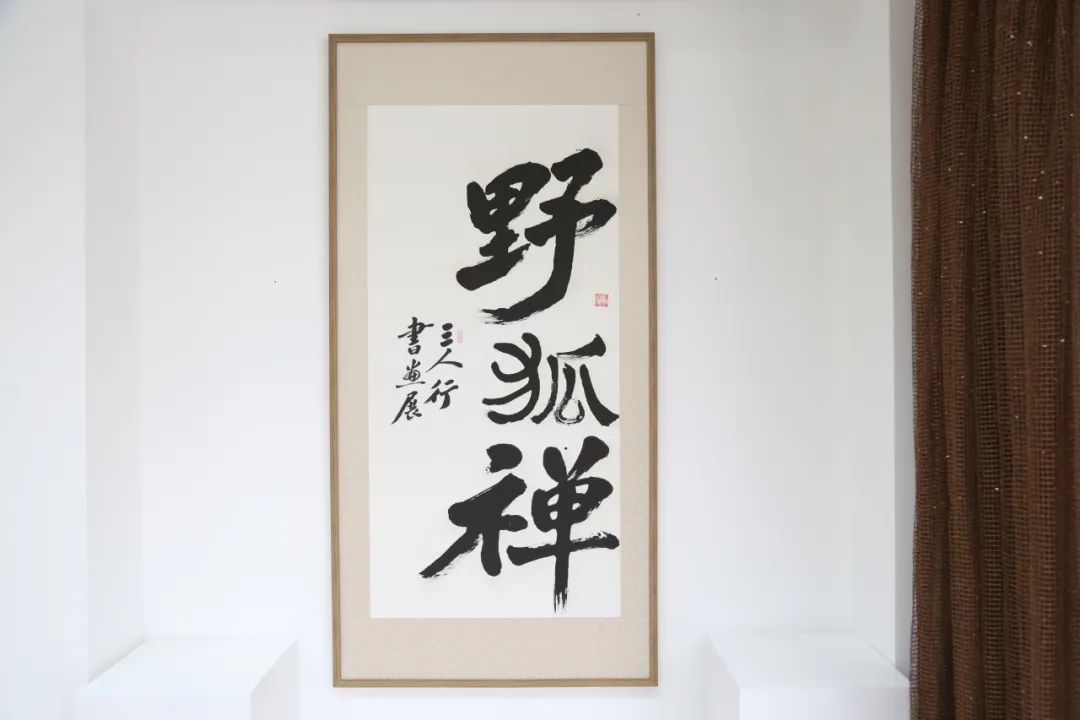 野狐禅
三人行
書画展